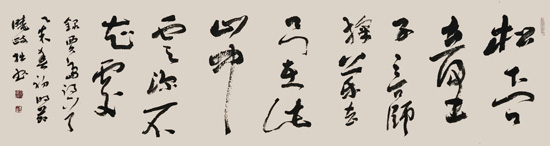 松下問
童
子言師
採藥去
只在此
山中
雲深不
知處
錄賈島詩
乙未春